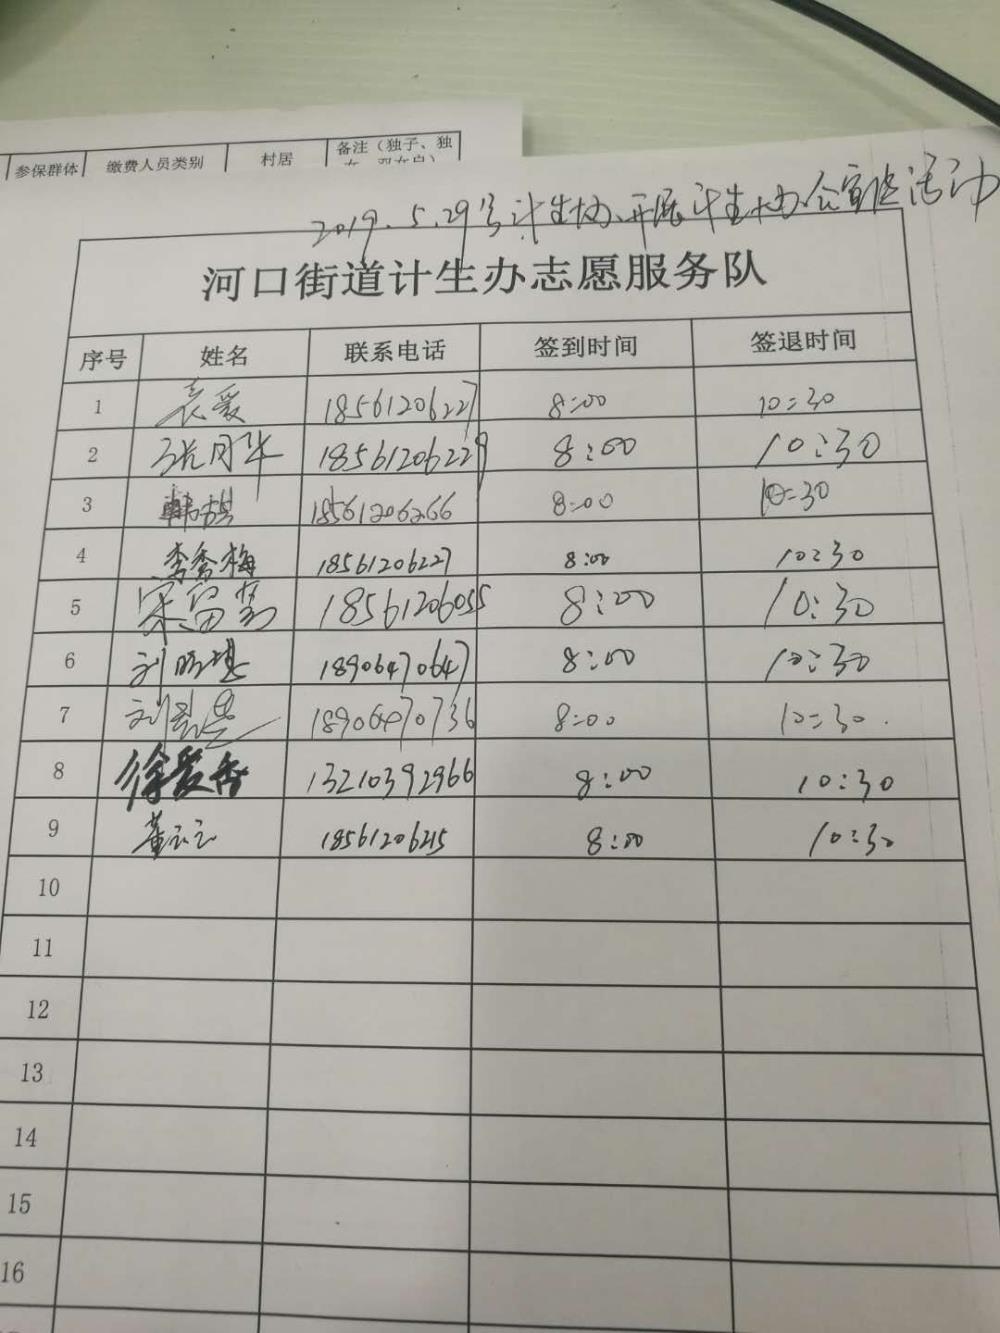 参保群体 缴费人员类别 村居 备注（独子、独
2019.5.29号计生协开展计生协会宣传活动
河口街道计生办志愿服务队
序号 姓名 联系电话 签到时间 签退时间
1 袁爱 18561206227 8:00 10:30
2 张月华 18561206229 8:00 10:30
3 韩 18561206266 8:00 10:30
4 李秀梅 18561206227 8:00 10:30
5 宋留 18561206055 8:00 10:30
6 刘 18906470647 8:00 10:30
7 刘 18906470736 8:00 10:30
8 徐爱香 13210392966 8:00 10:30
9 董云云 18561206215 8:00 10:30
10
11
12
13
14
15
16